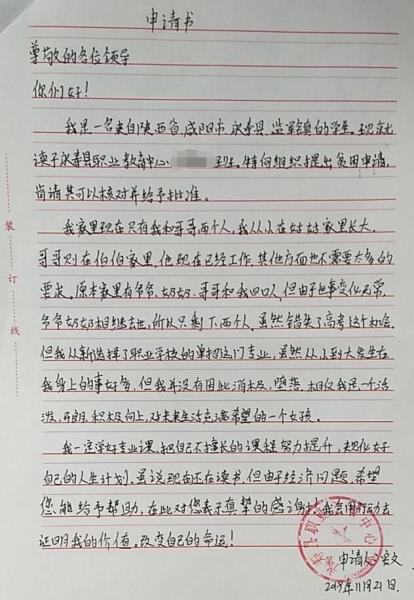 申请书
尊敬的各位领导
你们好！
我是一名来自陕西省,咸阳市,永寿县,监军镇的学生。现就
读于永寿县职业教育中心 班。特向组织提出贫困申请,
尚请其可以核对并给予批准。
我家里现在只有我和哥哥两个人,我从小在姑姑家里长大,
哥哥则在伯伯家里,他现在已经工作,其他方面也不需要太多的
要求。原本家里有爷爷、奶奶、哥哥和我四口人,但由于世事变化无常,
爷爷奶奶相继去世,所以只剩下两个人,虽然错失了高考这个机会,
但我从新选择了职业学校的单招这门专业,虽然从小到大发生在
我身上的事好多,但我并没有因此消极,堕落,相反我是一个活
泼,开朗,积极向上,对未来生活充满希望的一个女孩。
我一定学好专业课,把自己不擅长的课程努力提升,规划好
自己的人生计划,虽说现在还在读书,但由于经济问题,希望
您能给予帮助,在此对您表示真挚的感谢!我会用行动去
证明我的价值。改变自己的命运!
申请人
2019年11月21日.
装
订
线